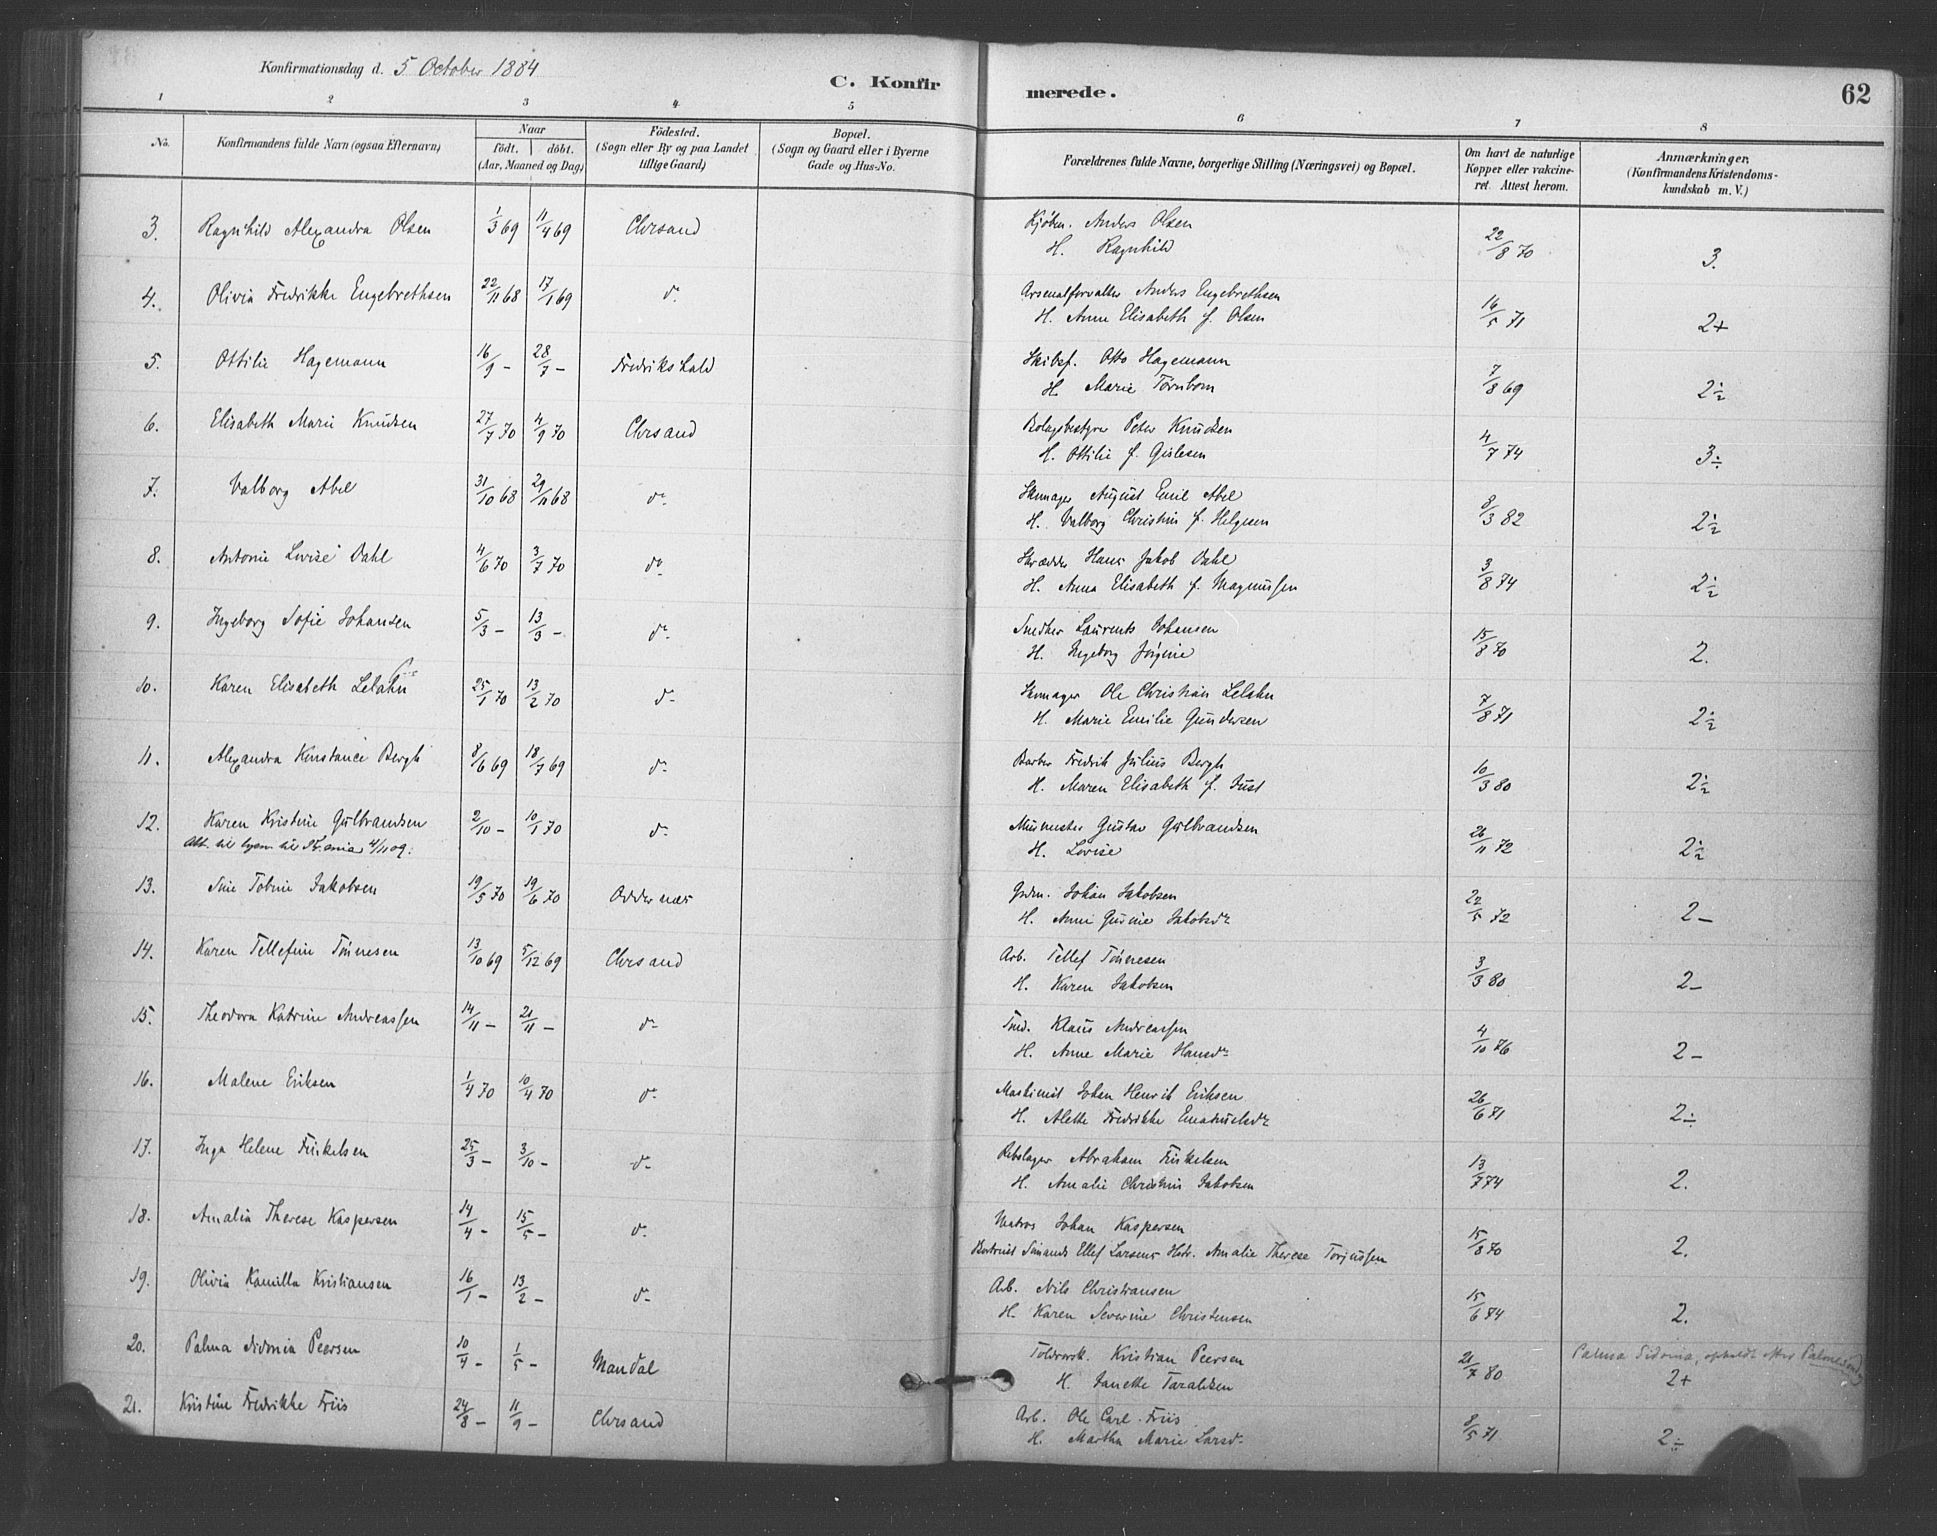 Konfirmationsdag d. 5 October 1884
C. Konfirmerede.
62
1 2 3 4 5 6 7 8
No.
Konfirmandens fulde Navn (ogsaa Efternavn)
Naar
födt. döbt.
(Aar, Maaned og Dag)
Födested.
(Sogn eller By og paa Landet
tillige Gaard)
Bopæl.
(Sogn og Gaard eller i Byerne
Gade og Hus-No.
Forældrenes fulde Navne, borgerlige Stilling (Næringsvei) og Bopæl.
Om havt de naturlige
Kopper eller vakcine-
ret. Attest herom.
Anmærkninger,
(Konfirmandens Kristendoms-
kundskab m. V.)
3. Ragnhild Alexandra Olsen 1/3 69 11/4 69 Chrsand Kjöbm. Anders Olsen 22/8 70 3.
H. Ragnhild
4. Olivia Fredrikke Engebrethsen 22/11 68 17/1 69 do Arsenalforvalter Anders Engebrethsen 16/5 71 2+
H. Anne Elisabeth f. Olsen
5. Ottilie Hagemann 16/9 - 28/7 - Fredrikshald Skibsf. Otto Hagemann 7/8 69 2 1/2
H. Marie Törnbom
6. Elisabeth Marie Knudsen 27/7 70 4/9 70 Chrsand Bolagsbestyrer Peter Knudsen 4/7 74 3÷
H. Ottilie f. Gislesen
7. Valborg Abel 31/10 68 29/11 68 do Skomager August Emil Abel 8/3 82 2 1/2
H. Valborg Christine f. Helgesen
8. Antonie Lovise Dahl 4/6 70 3/7 70 do Skrædder Hans Jakob Dahl 3/8 74 2 1/2
H. Anna Elisabeth f. Magnussen
9. Ingeborg Sofie Johansen 5/3 - 13/3 - do Snedker Laurents Johansen 15/8 70 2.
H. Ingeborg Jörgine
10. Karen Elisabeth Lelahn 25/1 70 13/2 70 do Skomager Ole Christian Lelahn 7/8 71 2 1/2
H. Marie Emilie Gundersen
11. Alexandra Konstance Bergh 8/6 69 18/7 69 do Barber Fredrik Julius Bergh 10/3 80 2 1/2
H. Maren Elisabeth f. Just
12. Karen Kristine Gulbrandsen 2/10 - 10/1 70 do Murmester Gustav Gulbrandsen 26/11 72 2 1/2
4/11 09. H. Lovise
13. Sine Tobine Jakobsen 19/5 70 19/6 70 Oddernæs Grdm. Johan Jakobsen 22/5 72 2-
H. Anne Gurine Jakobsdr
14. Karen Tellefine Tönnesen 13/10 69 5/12 69 Chrsand Arb. Tellef Tönnesen 3/3 80 2-
H. Karen Jakobsen
15. Theodora Katrine Andreassen 14/11 - 21/11 - do Tönd. Klaus Andreassen 4/10 76 2-
H. Anne Marie Hansdr
16. Malene Eriksen 1/4 70 10/4 70 do Maskinist Johan Henrik Eriksen 26/6 71 2÷
H. Alette Fredrikke Emanuelsdr
17. Inga Helene Finkelsen 25/3 - 3/10 - do Rebslager Abraham Finkelsen 13/7 74 2.
H. Amalie Christine Jakobsen
18. Amalia Therese Kaspersen 14/4 - 15/5 - do Matros Johan Kaspersen 15/8 70 2.
Bortreist Sömands Ellef Larsens Hstr. Amalie Therese Torjussen
19. Olivia Kamilla Kristiansen 16/1 - 13/2 - do Arb. Nils Christiansen 15/6 74 2.
H. Karen Severine Christensen
20. Palma Sidonia Peersen 10/4 - 1/5 - Mandal Toldrorsk. Kristian Peersen 21/7 80 Palma Sidonia, opkaldt efter Palmesöndag
H. Janette Taraldsen 2+
21. Kristine Fredrikke Friis 24/8 - 11/9 - Chrsand Arb. Ole Carl Friis 8/5 71 2÷
H. Martha Marie Larsdr